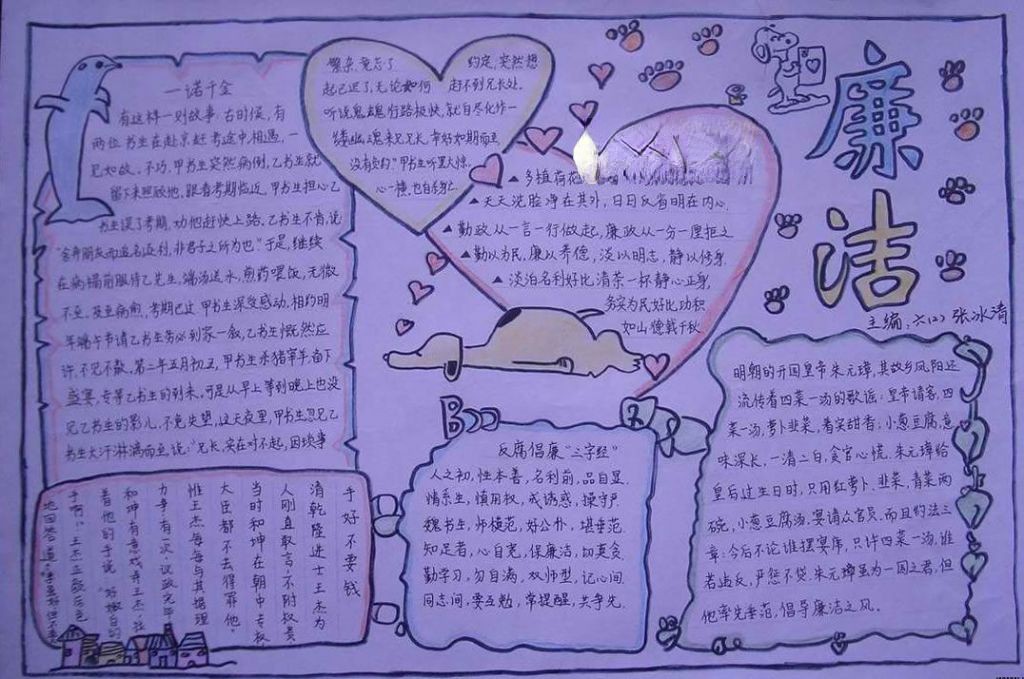 廉
洁
主编：六(2) 张冰清
一诺千金
有这样一则故事：古时候，有
两位书生在赴京赶考途中相遇，一
见如故。不巧，甲书生突然病倒，乙书生就
留下来照顾他，眼看考期临近，甲书生担心乙
书生误了考期，劝他赶快上路。乙书生不肯，说
"舍弃朋友而追名逐利，非君子之所为也"于是，继续
在病榻前服侍乙先生，端汤送水，煎药喂饭，无微
不至。及至病愈，考期已过，甲书生深受感动，相约明
年端午节请乙书生务必到家一叙，乙书生慨然应
许，不见不散。第二年五月初五，甲书生杀猪宰羊，备下
盛宴，专等乙书生的到来，可是从早上等到晚上也没
见乙书生的影儿，不免失望，这天夜里，甲书生忽见乙
书生大汗淋漓而至说："兄长，实在对不起，因琐事
繁杂，竟忘了约定，突然想
起已迟了，无论如何赶不到兄长处。
听说鬼魂行路极快，就自尽化作一
缕幽魂来见兄长，幸好如期而至，
没有负约。"甲书生听罢大惊，
心一横，也自刎亡。
▲多植荷花
▲天天洗脸净在其外，日日反省明在内心
▲勤政从一言一行做起，廉政从一分一厘拒之
▲勤以为民，廉以养德，淡以明志，静以修身
▲淡泊名利好比清茶一杯静心正身，
务实为民好比功积
如山德载千秋
手好不要钱
清乾隆进士王杰为
人刚直敢言，不附权贵
当时和珅在朝中专权
大臣都不去得罪他，
惟王杰每每与其据理
力争，有一次，议政完毕
和珅有意戏弄王杰，拉
着他的手说："好嫩白的
手啊！"王杰正颜厉色
地回答道
反腐倡廉"三字经"
人之初，性本善，名利前，品自显
情系生，慎用权，戒诱惑，操守严
魏书生，师模范，好公仆，堪垂范
知足者，心自宽，保廉洁，切莫贪
勤学习，勿自满，双师型，记心间
同志间，要互勉，常提醒，共争先
明朝的开国皇帝朱元璋，其故乡凤阳还
流传着四菜一汤的歌谣：皇帝请客，四
菜一汤，萝卜韭菜，着实甜香；小葱豆腐，意
味深长，一清二白，贪官心慌。朱元璋给
皇后过生日时，只用红萝卜、韭菜，青菜两
碗，小葱豆腐汤，宴请众官员。而且约法三
章：今后不论谁摆宴席，只许四菜一汤，谁
若违反，严惩不贷。朱元璋虽为一国之君，但
他率先垂范，倡导廉洁之风。